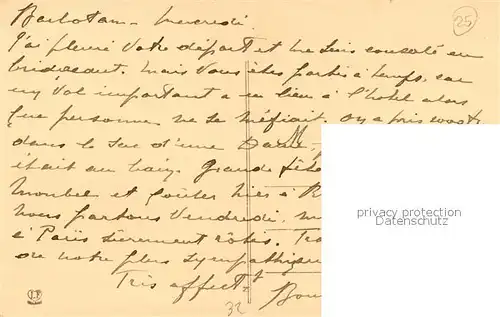 Barbotan - Mercredi.
25
J'ai pleuré votre départ et me suis consolé en
bridgeant. Mais vous êtes partis à temps, car
un vol important a eu lieu à l'hôtel alors
que personne ne se méfiait. On a pris
dans le sac d'une Dame,
était au bain. Grande fête
et goûter hier à
privacy protection
Datenschutz
nous partons Vendredi,
à Paris sûrement rôtis.
de notre plus sympathique
Très affect.t
32